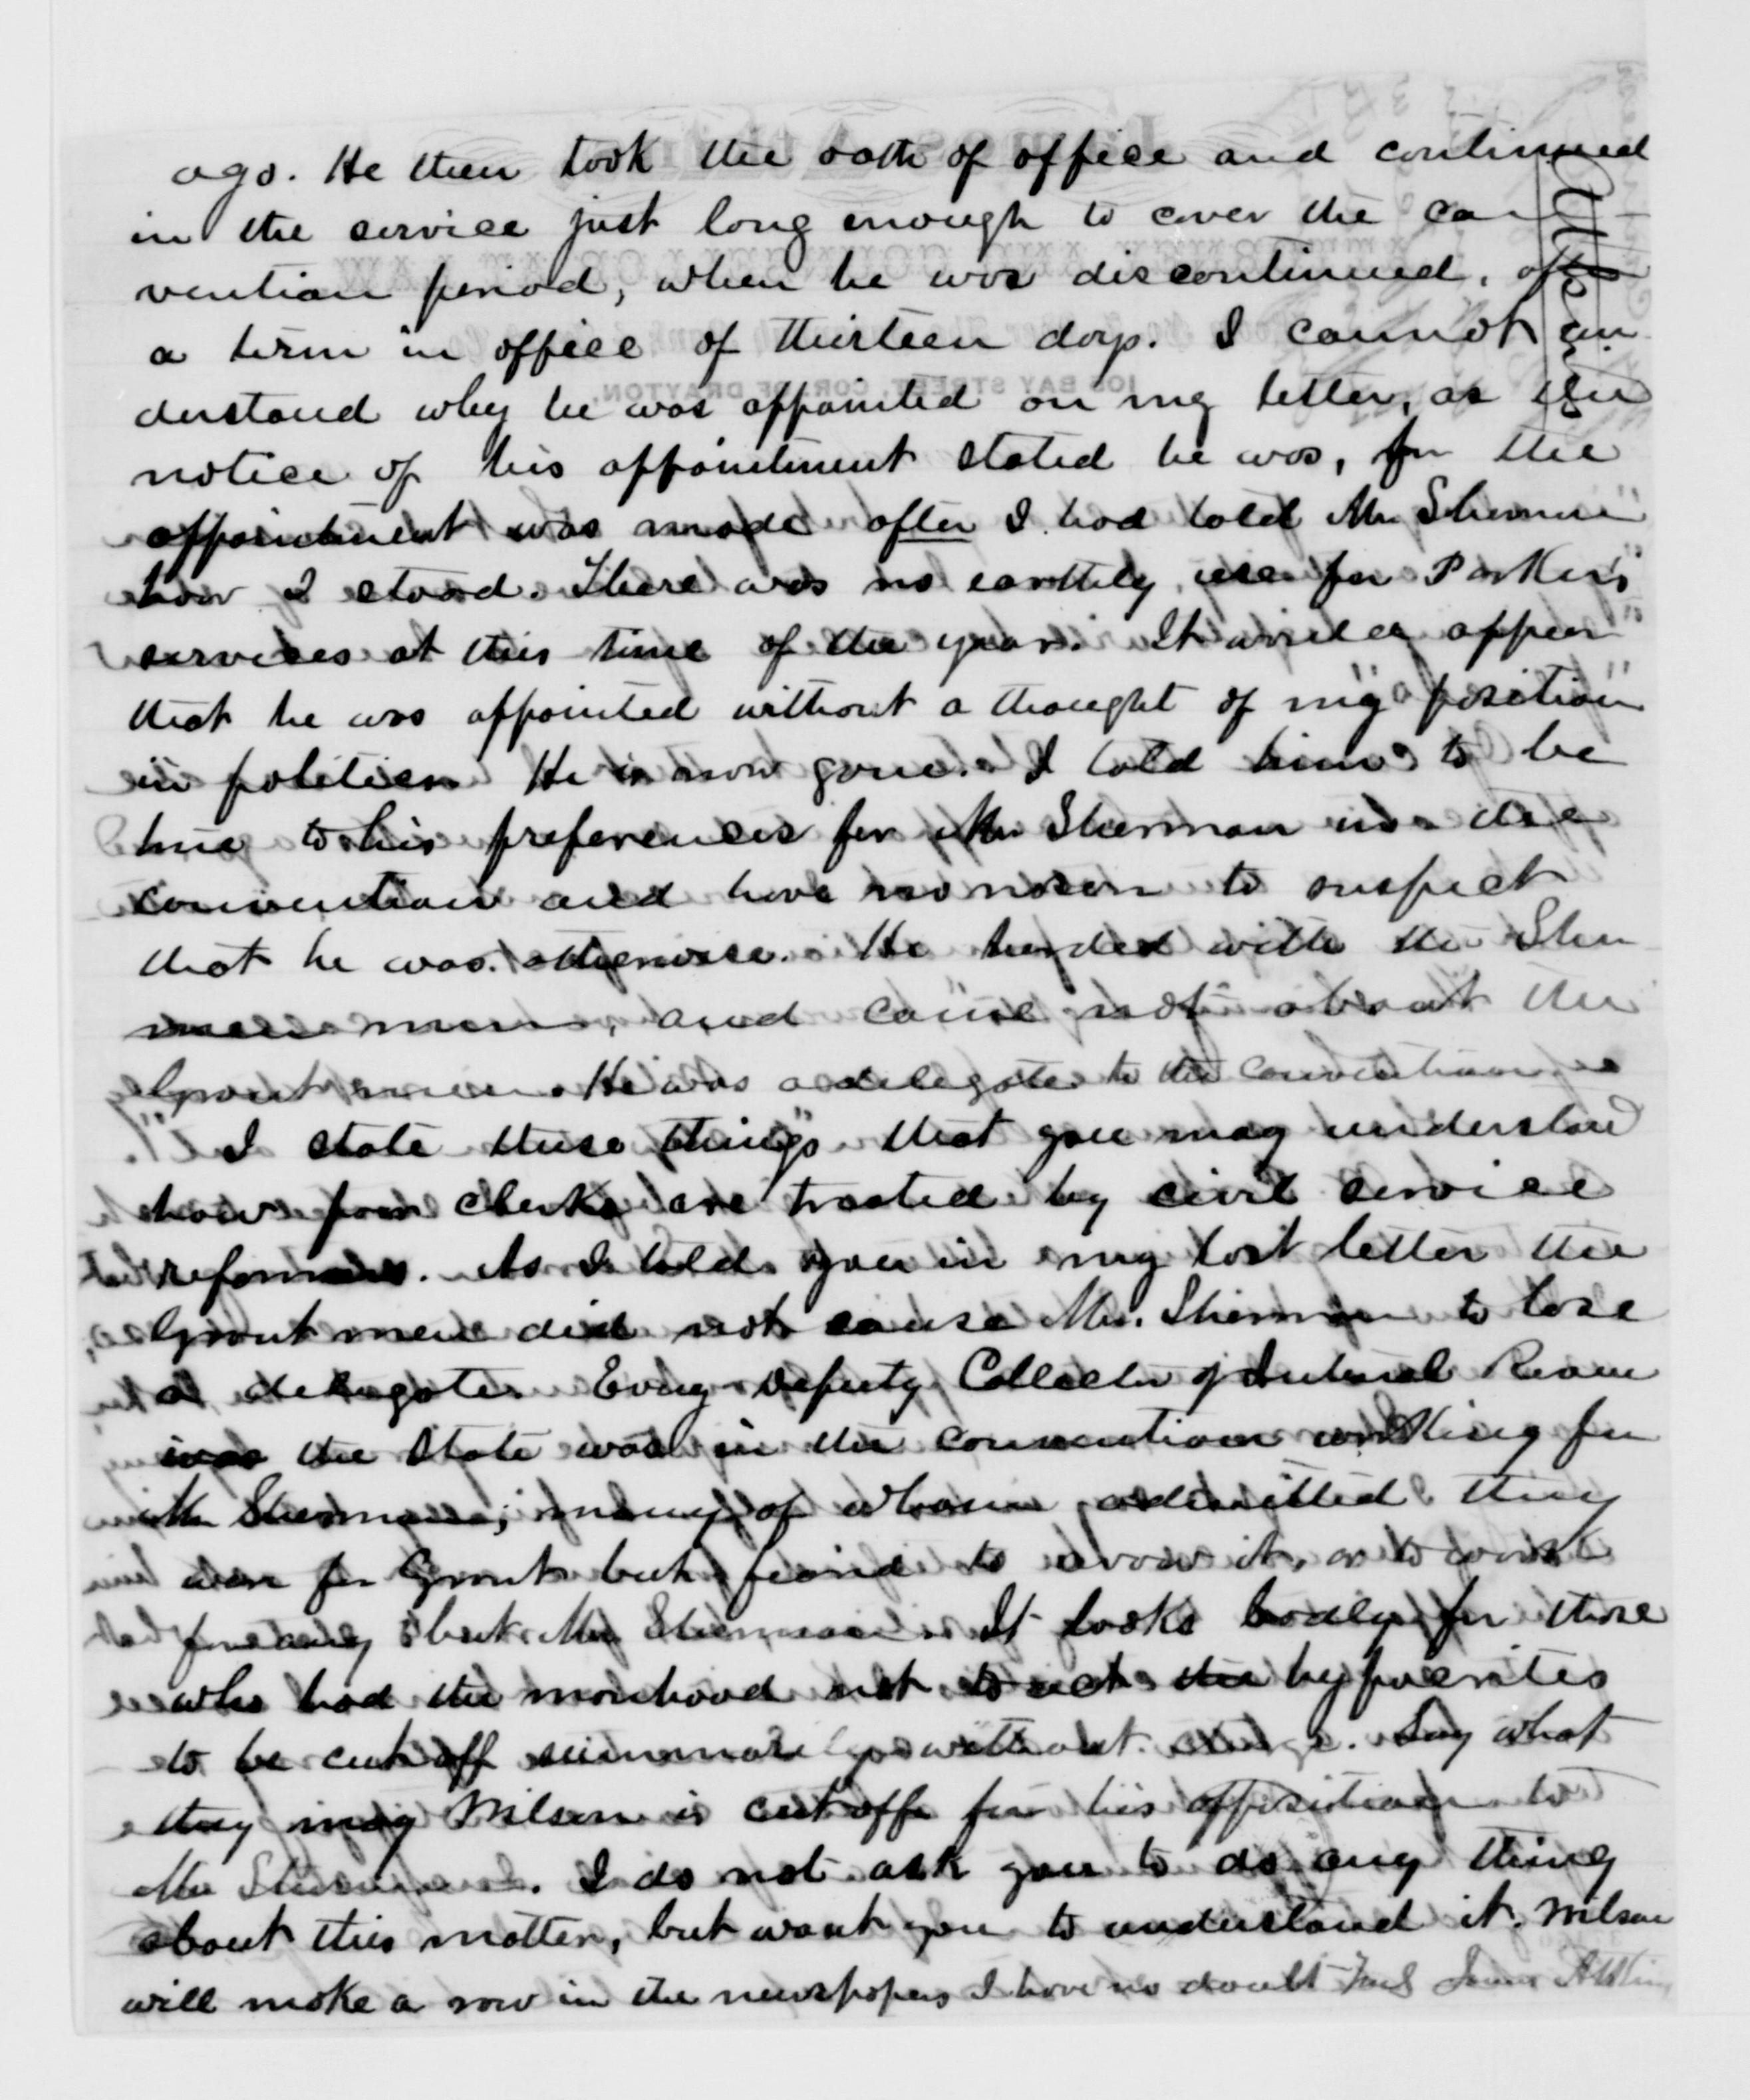 ago. He then took the oath of office and continued
in the service just long enough to cover the con
vention period, when he was discontinued, after
a term in office of thirteen days. I cannot un
derstand why he was appointed on my letter, as the
notice of his appointment stated he was, for the
appointment was made after I had told Mr Sherman
how I stood. There was no earthly use for Parker's
services at this time of the year. It would appear
that he was appointed without a thought of my position
in politics. He is now gone. I told him to be
true to his preferences for Mr Sherman in the
convention and have no reason to suspect
that he was otherwise. He herded with the Sher
man men, and came not about the
Grant men. He was a delegate to the convention
I state these things that you may understand
how poor clerks are treated by civil service
reformers. As I told you in my last letter the
Grant men did not cause Mr. Sherman to lose
a delegate. Every Deputy Collector of Internal Revenue
in the State was in the convention working for
Mr Sherman; many of whom admitted they
were for Grant but feared to avow it, or to work
for any but Mr Sherman. It looks badly for those
who had the manhood not to act the hypocrites
to be cut off summarily without. Say what
they may Wilson is cut off for his opposition to
Mr Sherman. I do not ask you to do any thing
about this matter, but want you to understand it. Wilson
will make a row in the newspapers I have no doubt James Atkins
JOS BAY STREET, COR. OF DRAYTON.